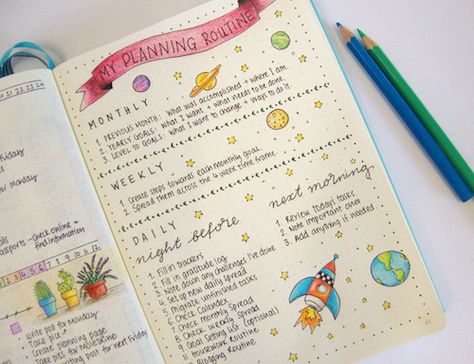 21 22 23 24
Friday
Monday
- check online +
find information
1 2 3 4 5 6 7 8 9
Write post for Monday
Take pics
Create planning page
Take pics for Moleskine
Plan post for next Friday
MY PLANNING ROUTINE
MONTHLY
1. PREVIOUS MONTH: What was accomplished + where I am.
2. YEARLY GOALS: What I want + what needs to be done.
3. LEVEL 10 GOALS: What I want to change + ways to do it.
WEEKLY
1. Create steps towards each monthly goal.
2. Spread them across the 4 week time frame.
DAILY
night before
1. Fill in trackers
2. Fill in gratitude log
3. Note down any challenges I've done
4. Set up new daily spread
5. Migrate unfinished tasks
6. Check Calendex
7. Check monthly spread
8. Check weekly spread
9. Goal Setting list (optional)
Homework Routine
Blogging Routine
next morning
1. Review today's tasks
2. Note important ones
3. Add anything if needed